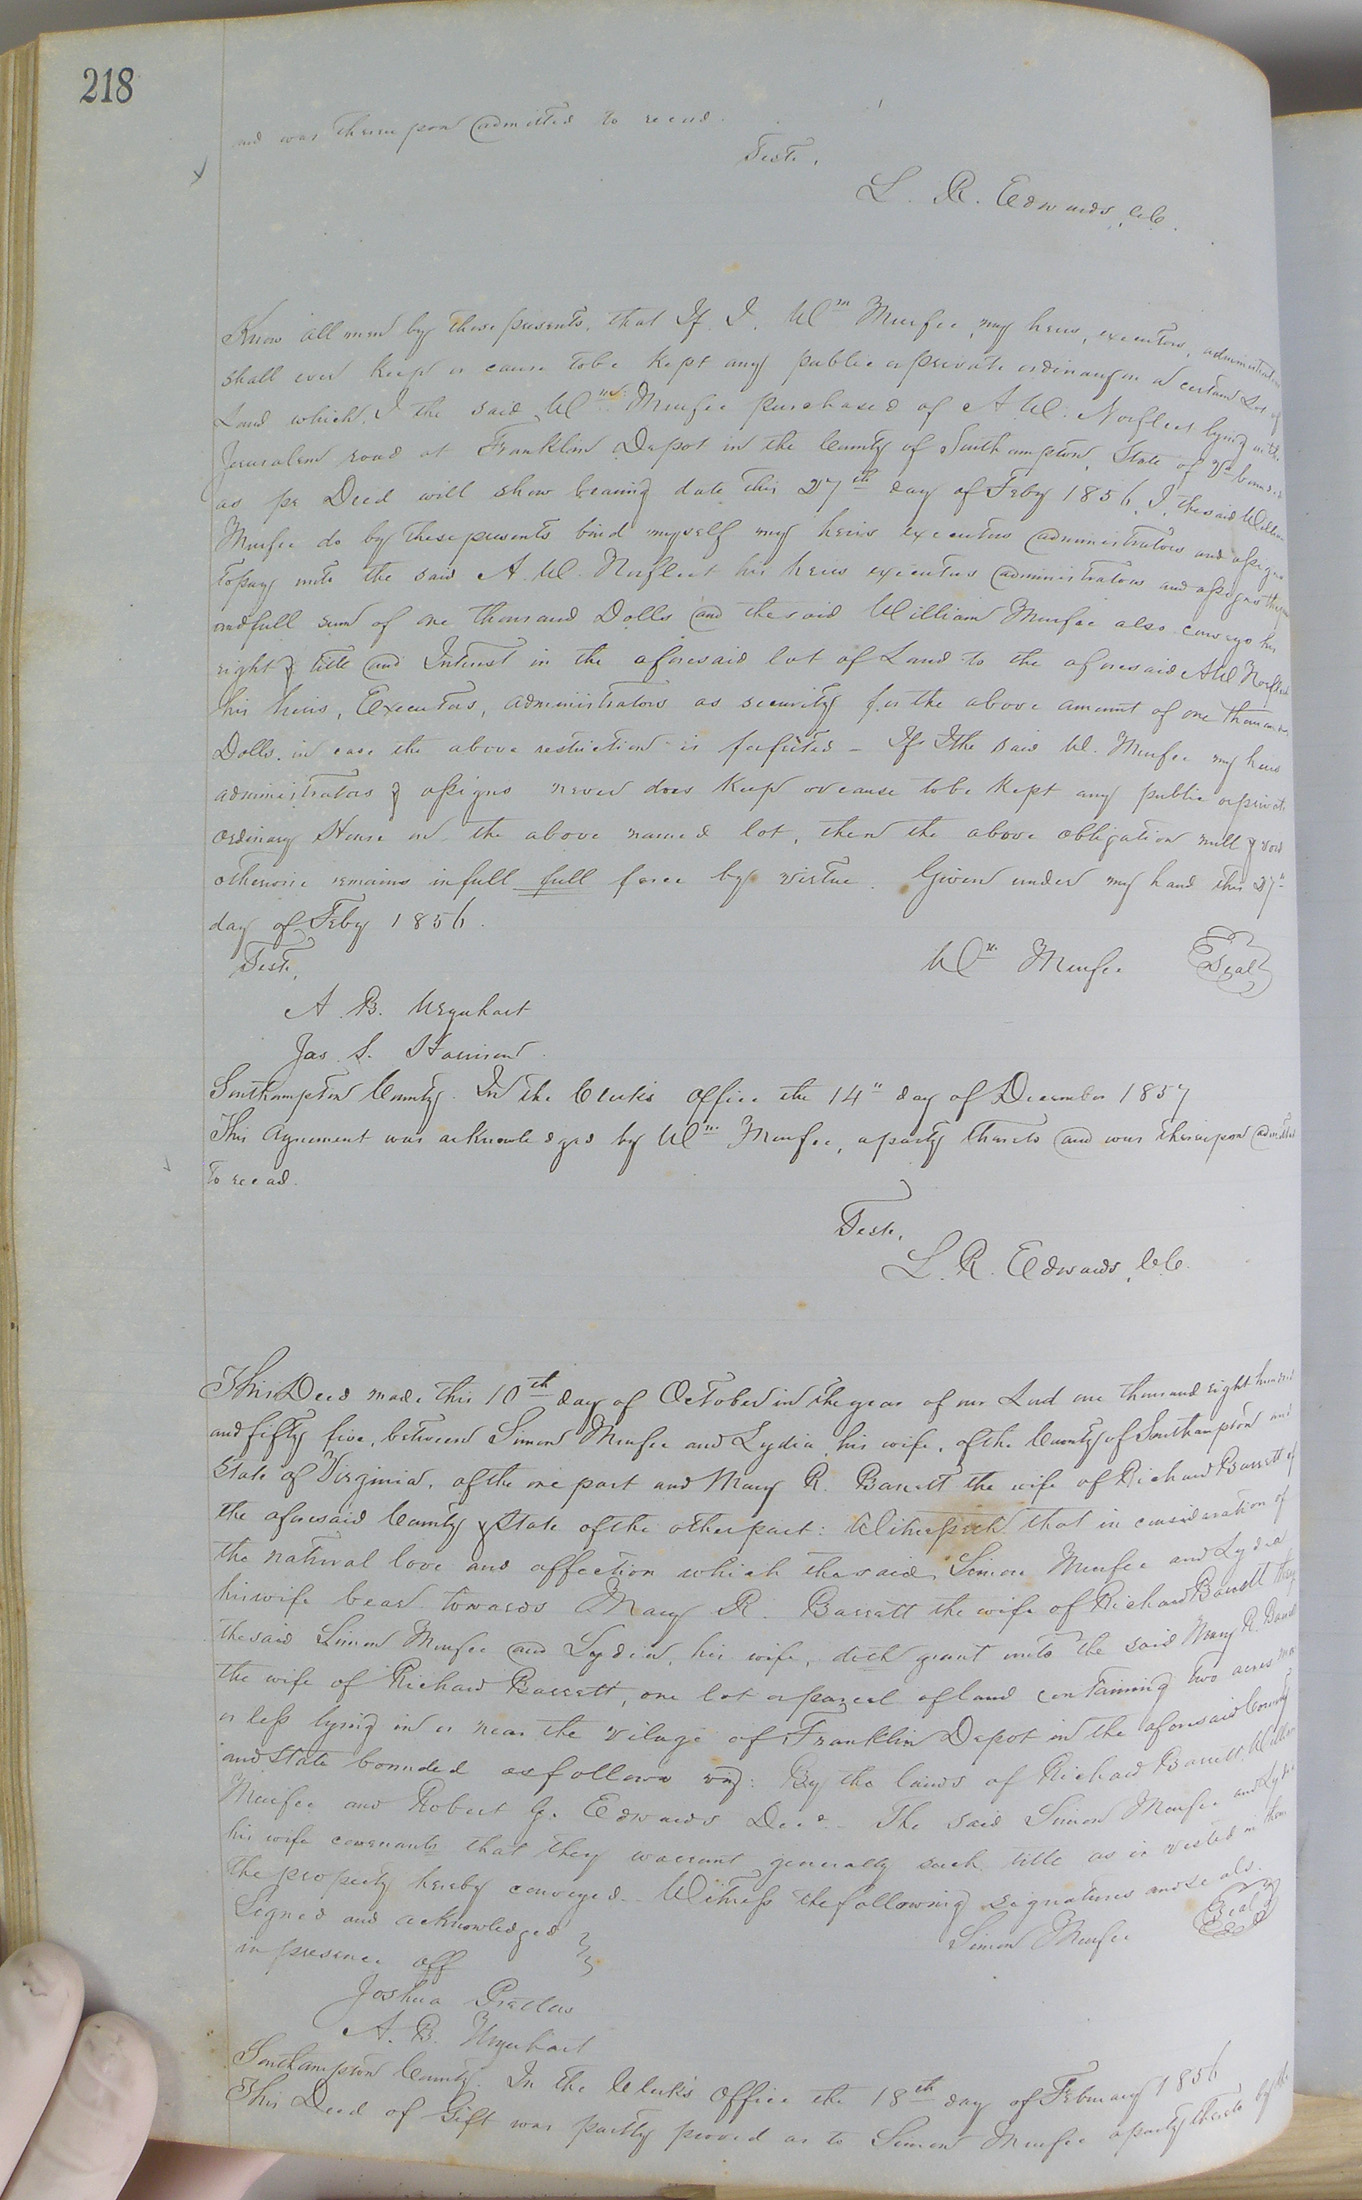 218
and was thereupon admitted to record.
Teste,
L. R. Edwards, C.C.
Know all men by these presents, that If I, Wm Murfee, my heirs, executors, administrators
shall ever keep or cause tobe kept any public or private ordinary on a certain Lot of
Land which, I the said Wm Murfee purchased of A. W. Norfleet lying on the
Jerusalem road at Franklin Depot in the County of Southampton, State of Va
as pr Deed will show bearing date this 27th day of Feby 1856, I, the said William
Murfee do by these presents bind myself my heirs executors administrators and assigns
to pay unto the said A. W. Norfleet his heirs executors administrators and assigns the
and full sum of one thousand Dolls and the said William Murfee also conveys his
right & title and Interest in the aforesaid lot of Land to the aforesaid A W Norfleet
his heirs, Executors, administrators as security for the above amount of one thousand
Dolls. in case the above restriction is forfeited - If I the said W. Murfee my heirs
administrators & assigns never does keep or cause to be kept any public or private
ordinary House on the above named lot, then the above obligation null & void
otherwise remains in full full force by virtue. Given under my hand this 27"
day of Feby 1856.
Teste, Wm Murfee Seal
A. B. Urquhart
Jas. S. Harrison
Southampton County. In the Clerk's Office the 14" day of December 1857
This Agreement was acknowledged by Wm Murfee, a party thereto and was thereupon admitted
to record.
Teste,
L. R. Edwards, C.C.
This Deed made this 10th day of October in the year of our Lord one thousand eight hundred
and fifty five, between Simon Murfee and Lydia, his wife, of the County of Southampton and
State of Virginia, of the one part and Mary R. Barrett the wife of Richard Barrett of
the aforesaid County & State of the other part: Witnesseth that in consideration of
the natural love and affection which the said Simon Murfee and Lydia
his wife bear towards Mary R. Barrett the wife of Richard Barrett they
the said Simon Murfee and Lydia, his wife, doth grant unto the said Mary R. Barrett
the wife of Richard Barrett, one lot or parcel of land containing two acres more
or less lying in or near the vilage of Franklin Depot in the aforesaid County
and State bounded as follows viz: By the lands of Richard Barrett, William
Murfee and Robert G. Edwards Decd. The said Simon Murfee and Lydia
his wife covenants that they warrant generally such title as is vested in them
the property hereby conveyed. Witness the following signatures and seals.
Signed and acknowledged
in presence off
Simon Murfee Seal
Joshua Pretlow
A. B. Urquhart
Southampton County. In the Clerk's Office the 18th day of February 1856
This Deed of Gift was partly proved as to Simon Murfee a party thereto by the